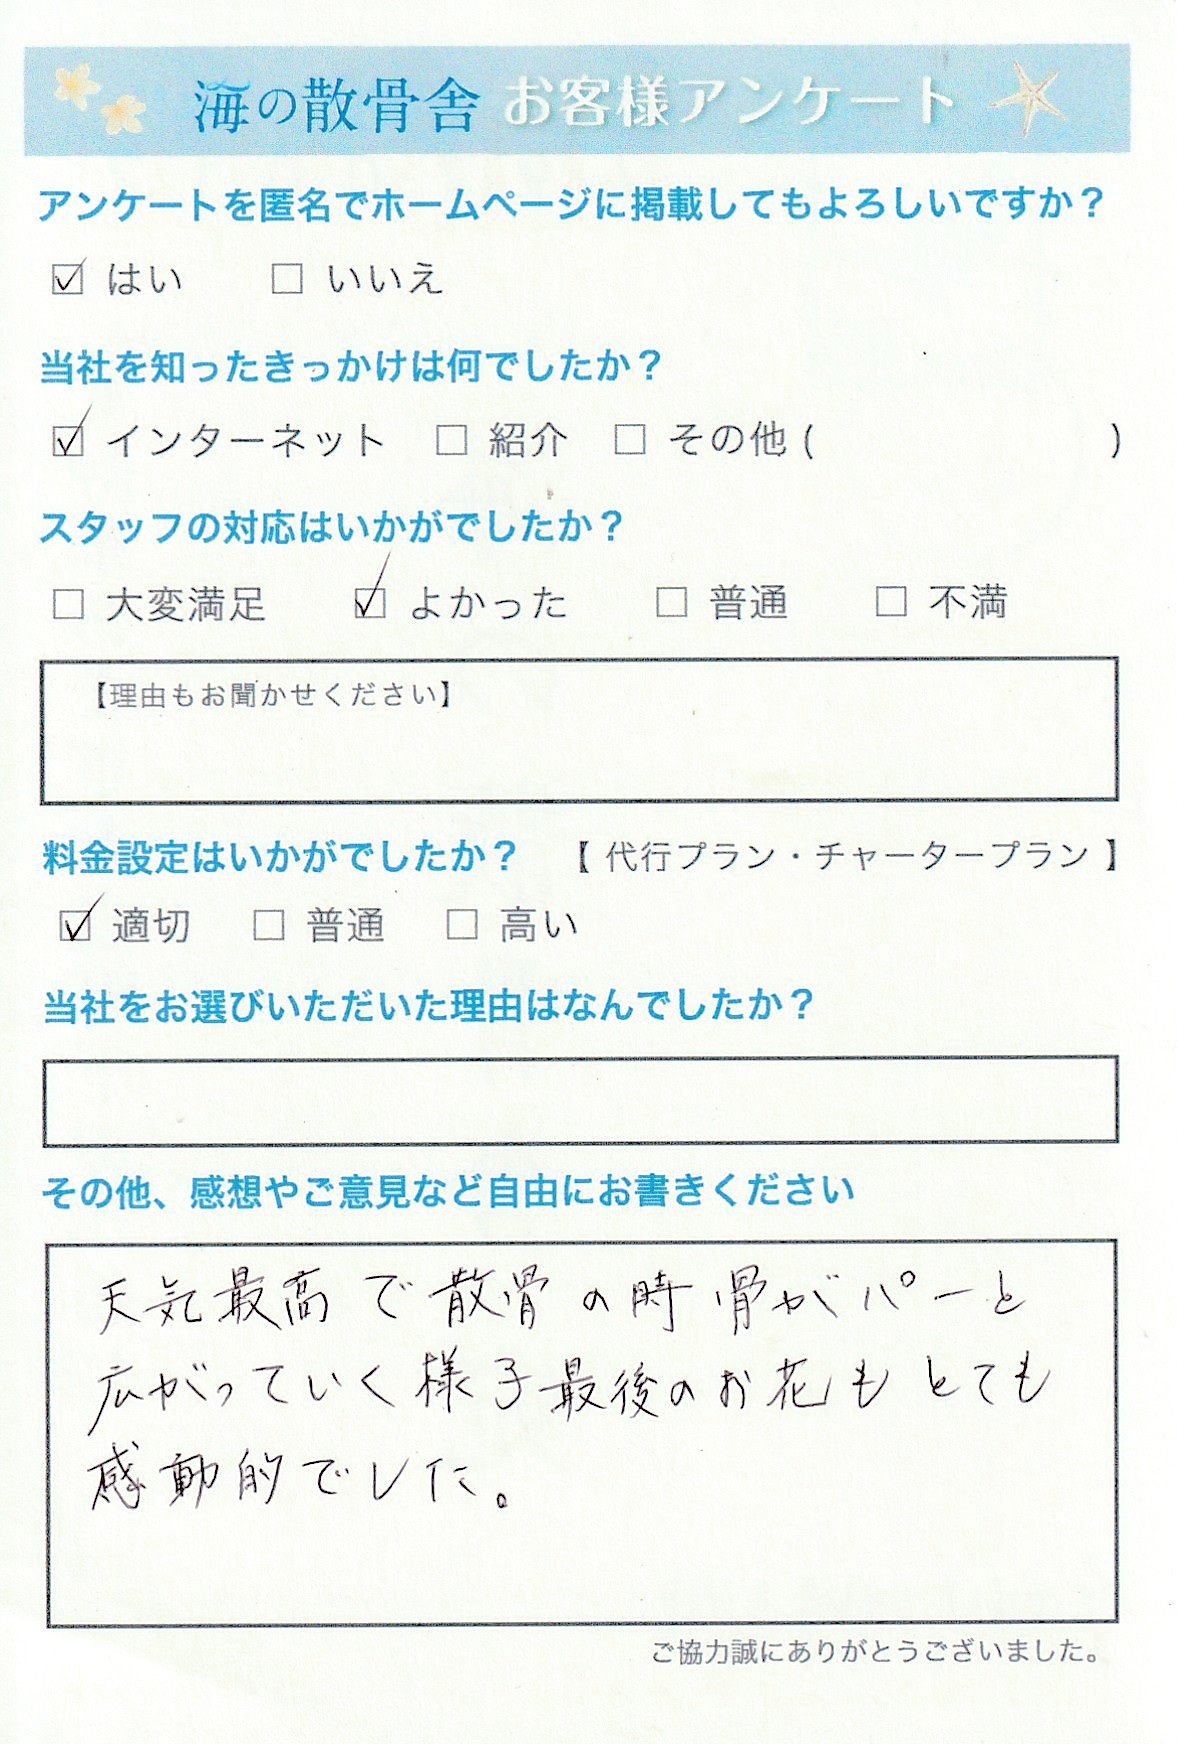 海の散骨舎 お客様アンケート
アンケートを匿名でホームページに掲載してもよろしいですか？
☑ はい □ いいえ
当社を知ったきっかけは何でしたか？
☑ インターネット □ 紹介 □ その他 ( )
スタッフの対応はいかがでしたか？
□ 大変満足 ☑ よかった □ 普通 □ 不満
【理由もお聞かせください】
料金設定はいかがでしたか？ 【 代行プラン・チャータープラン 】
☑ 適切 □ 普通 □ 高い
当社をお選びいただいた理由はなんでしたか？
その他、感想やご意見など自由にお書きください
天気最高で散骨の時骨がパーと
広がっていく様子最後のお花もとても
感動的でした。
ご協力誠にありがとうございました。